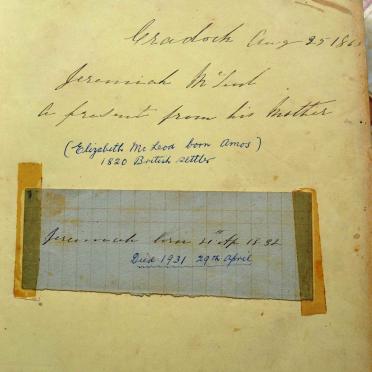 Cradock Aug 25 186
Jeremiah McLeod
a present from his Mother
(Elizabeth McLeod born Amos)
1820 British settler
Jeremiah born 21st Ap 18
Died 1931 29th April